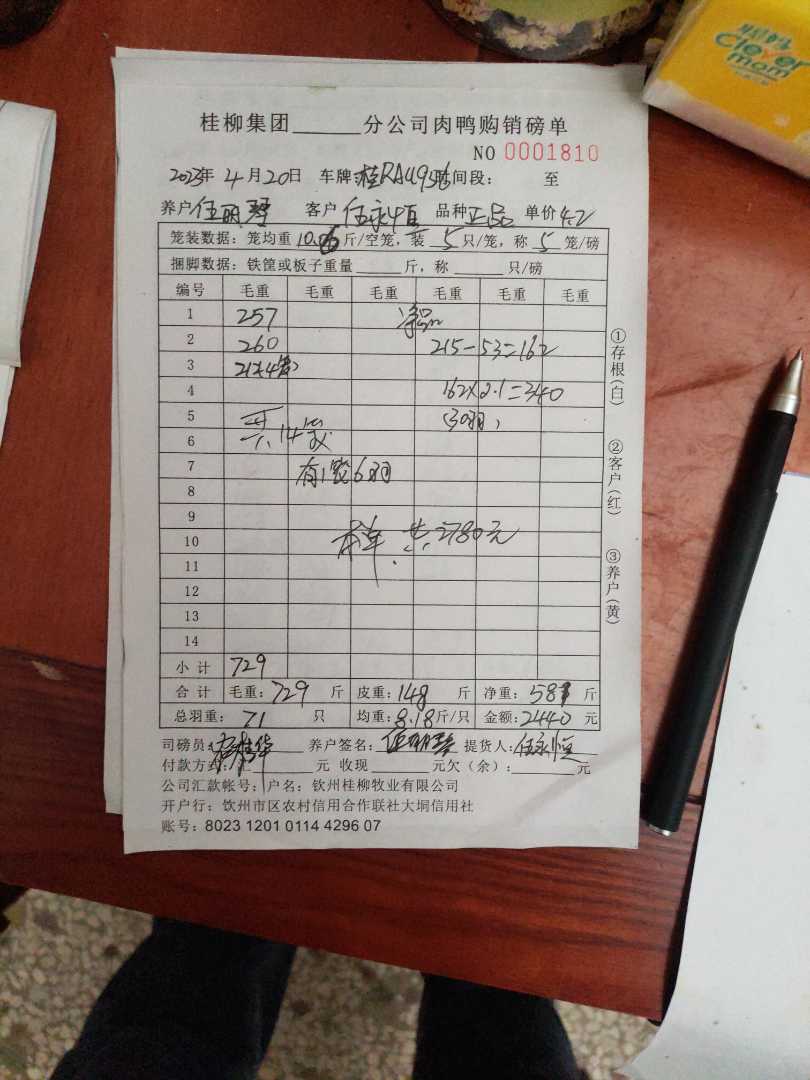 Clever mom
桂柳集团______分公司肉鸭购销磅单
NO 0001810
2023年 4月20日 车牌:桂RAU9596时间段: 至
养户伍丽琴 客户伍永恒 品种正品 单价4.2
笼装数据:笼均重10.6斤/空笼,装5只/笼,称5笼/磅
捆脚数据:铁筐或板子重量______斤,称______只/磅
编号 毛重 毛重 毛重 毛重 毛重 毛重
1 257
2 260 215-53=162
3 212(4笼)
4 162×2.1=340
5 (30羽)
6 共14笼
7 有1笼6羽
8
9
10 本单共:2780元
11
12
13
14
小计 729
合计 毛重:729斤 皮重:148斤 净重:581斤
总羽重:71只 均重:8.18斤/只 金额:2440元
司磅员: 养户签名:伍丽琴 提货人:伍永恒
付款方式:汇______元 收现______元欠(余):______元
公司汇款帐号:户名:钦州桂柳牧业有限公司
开户行:钦州市区农村信用合作联社大垌信用社
账号:8023 1201 0114 4296 07
①存根(白)
②客户(红)
③养户(黄)